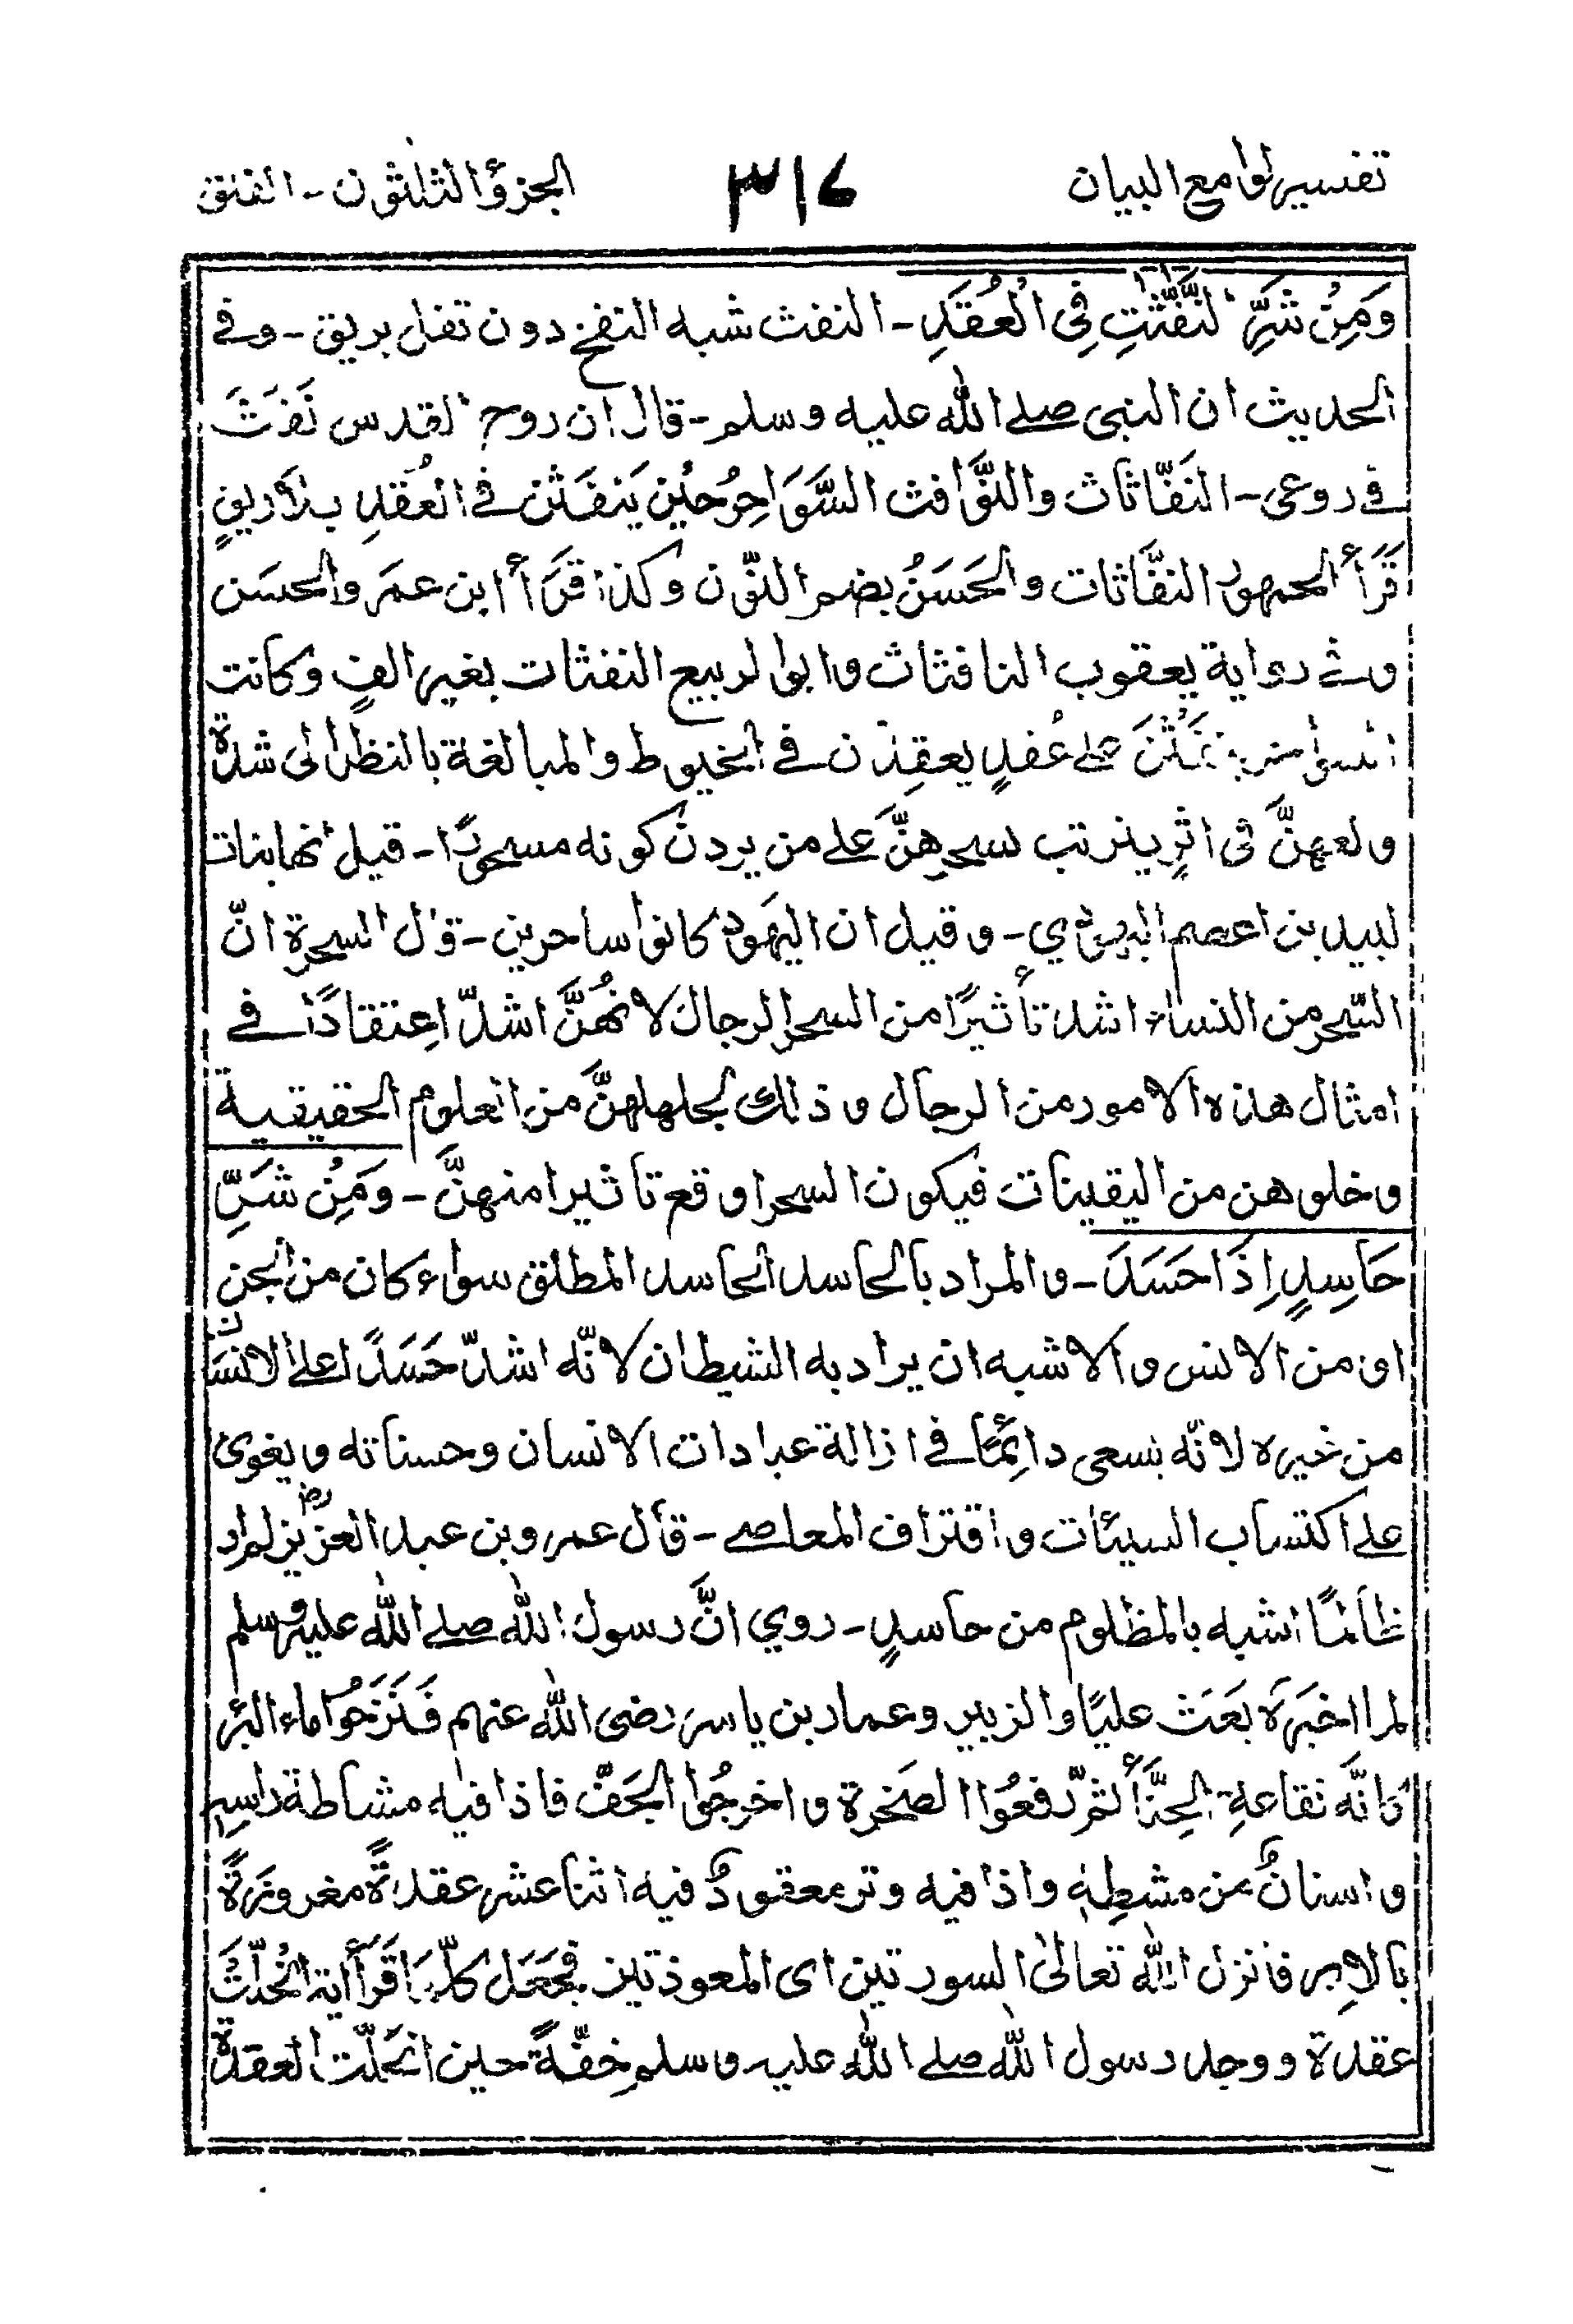 تفسير لوامع البيان ٣١٤ الجزؤ الثلثون - الفلق
وَمِنْ شَرِّ النَّفّٰثٰتِ فِى الْعُقَدِ - النفث شبه النفخ دون تفل بريق - وفے
الحديث ان النبى صلے الله عليه وسلم - قال ان روح القدس نَفَثَ
فے روعى - النَفّاثاث والنَّوَّافث السَّوَاحِرُ حِيْن يَنفَثن فے العُقدِ بلا ريقٍ
قَرَأ الجمهور النفَّاثات والحَسَنُ بضم النّون وكذا قَرَأ ابن عمَر والحسَن
وفے رواية يعقوب النافثاث وابوالربيع النفثات بغير الفٍ وكانت
يَنفُثْنَ علے عُقدٍ يعقِدْن فے الخيوط والمبالغة بالنظر الى شدة
ولعهنَّ فى اثرٍ يترتب لسحرِهنَّ علے من يردن كونه مسحورًا - قيل انها بنات
لبيد بن اعصم اليهودي - وقيل ان اليَهود كانوا ساحرين - قال السحرة انّ
السّحر من النساء اشد تأثيرًا من السحر الرجال لانهُنَّ اشدّ اعِتقادًا فے
امثال هذه الامور من الرجال وذلك لجهلهنَّ من العلوم الحقيقية
وخلوهن من اليقينات فيكون السحر اوقع تاثيرا منهنَّ - وَمِنْ شَرِّ
حَاسِدٍ اِذَا حَسَدَ - والمراد بالحاسد الحاسد المطلق سواء كان من الجن
او من الانس والاشبه ان يراد به الشيطان لانّه اشدّ حَسَدًا على الانسان
من غيره لانّه يسعى دائِمًا فے ازالة عبادات الانسان وحسناته ويغوى
علے اكتساب السيئات واقتراف المعاصے - قال عمرو بن عبد العزيز رض لم ار
ظالمًا اشبه بالمظلوم من حاسدٍ - روي انَّ رسول الله صلے الله عليه وسلم
لما اخبَرَه بَعَث عليًا والزبير وعمار بن ياسر رضى الله عنهم فَنَزَحُوا ماء البئر
كانَّه نقاعةِ الحِنَّأ ثم رفعُوا الصَخرة واخرجُوا الجَفّ فاذا فيه مشاطة راسِهٖ
واسنانٌ من مشطِهٖ واذا فيه وترمعقودٌ فيه اثنا عشر عقدةً مغروزةً
بالاِبر فانزل الله تعالىٰ السورتين اى المعوذتين فجَعَل كلّمَا قَرَأ اية انْحلّتَ
عقدة ووجد رسول الله صلے الله عليه وسلم خِفّةً حين انحَلّت العقدة